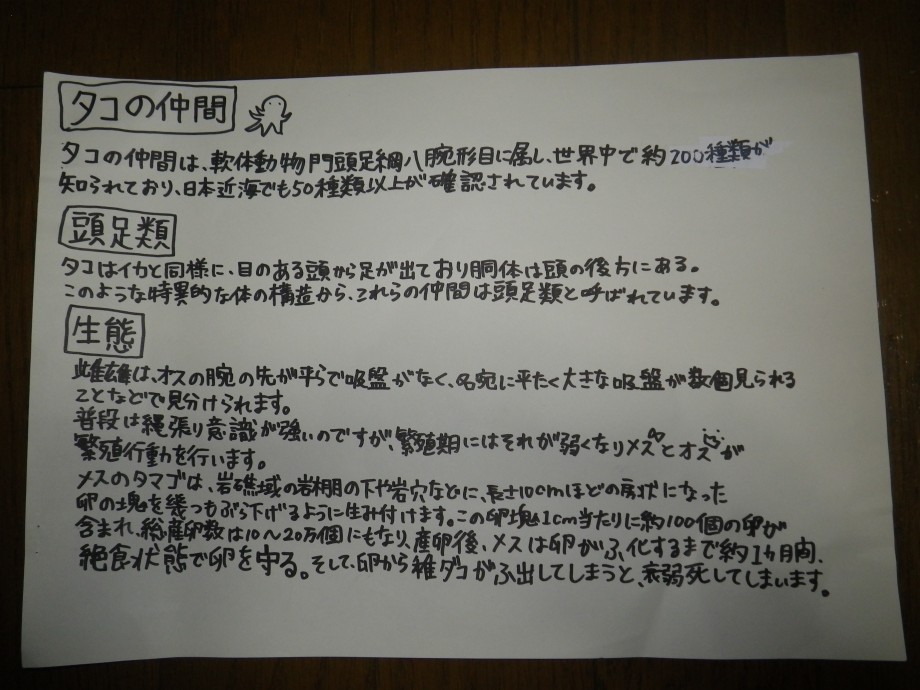 タコの仲間
タコの仲間は、軟体動物門頭足綱八腕形目に属し、世界中で約200種類が
知られており、日本近海でも50種類以上が確認されています。
頭足類
タコはイカと同様に、目のある頭から足が出ており胴体は頭の後方にある。
このような特異的な体の構造から、これらの仲間は頭足類と呼ばれています。
生態
雌雄は、オスの腕の先が平らで吸盤がなく、名宛に平たく大きな吸盤が数個見られる
ことなどで見分けられます。
普段は縄張り意識が強いのですが、繁殖期にはそれが弱くなりメスとオスが
繁殖行動を行います。
メスのタマゴは、岩礁域の岩棚の下や岩穴などに、長さ10cmほどの房状になった
卵の塊を幾つもぶら下げるように生み付けます。この卵塊1cm当たりに約100個の卵が
含まれ、総産卵数は10～20万個にもなり、産卵後、メスは卵がふ化するまで約1カ月間、
絶食状態で卵を守る。そして、卵から稚ダコがふ出してしまうと、衰弱死してしまいます。